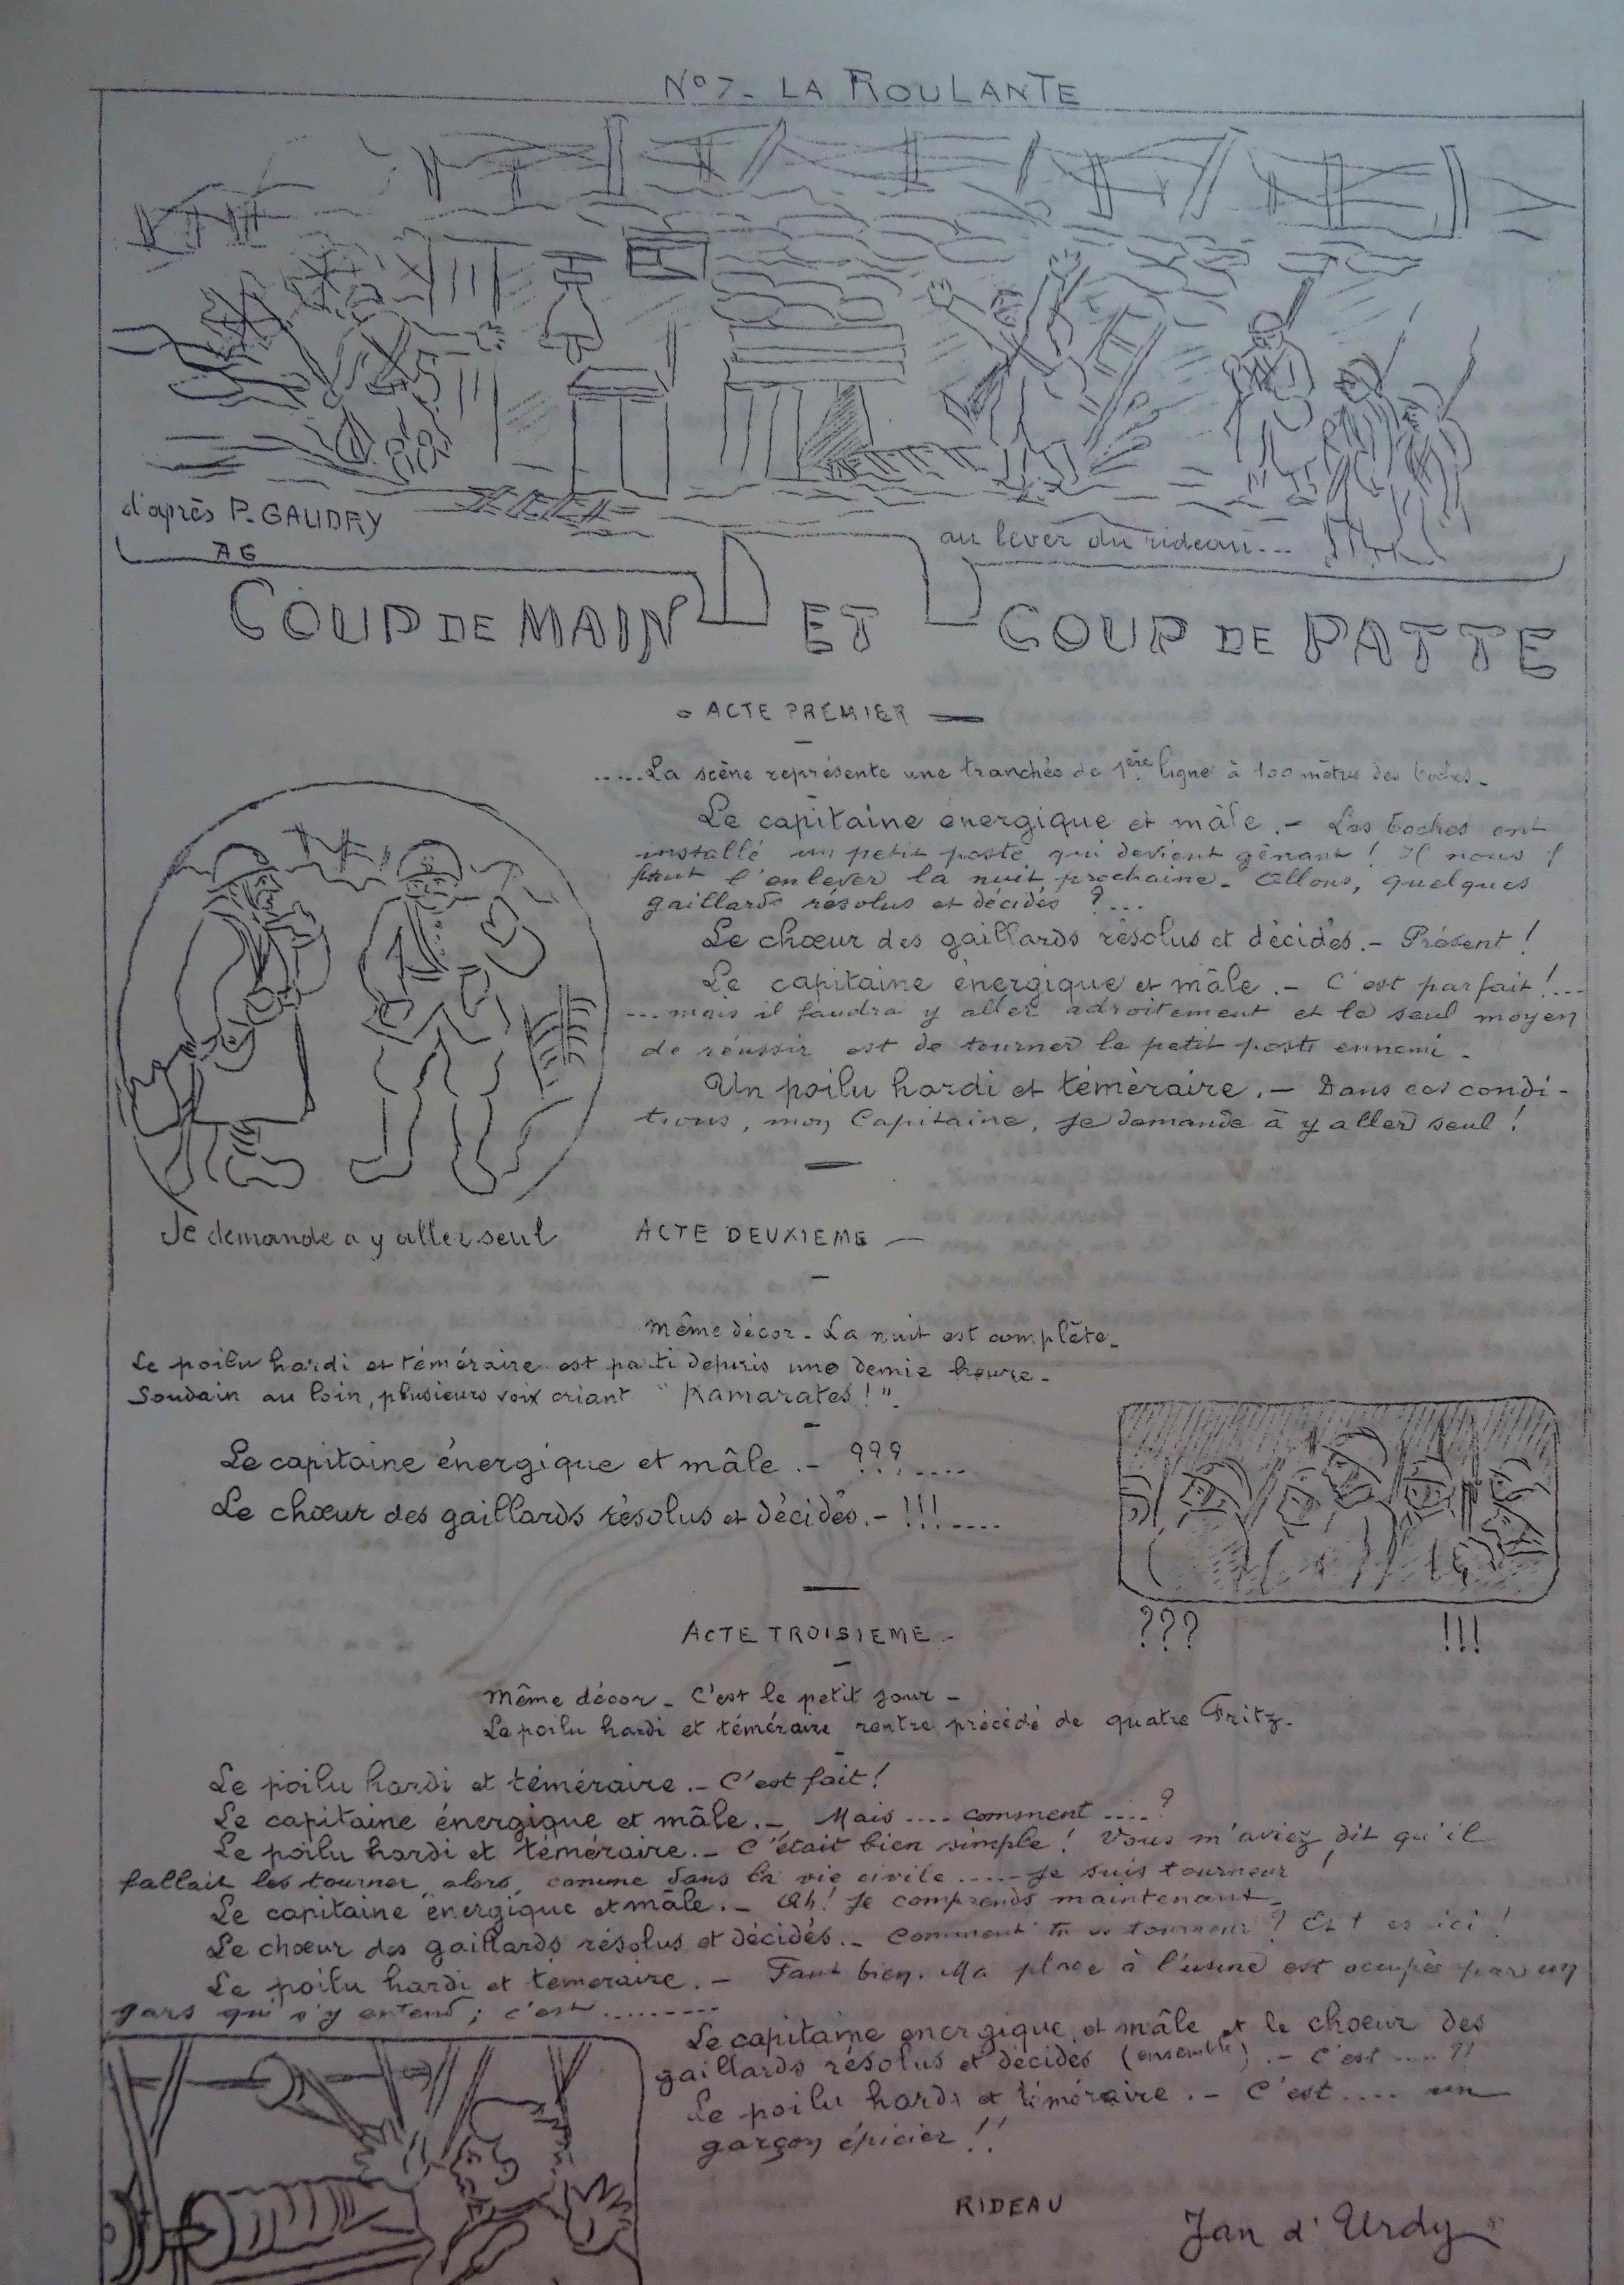 N° 7 - LA ROULANTE
d'après P. GAUDRY
AG
au lever du rideau...
COUP DE MAIN ET COUP DE PATTE
- ACTE PREMIER -
.....La scène représente une tranchée de 1ère ligne à 100 mètres des boches.
Le capitaine énergique et mâle. - Les boches ont
installé un petit poste qui devient gênant ! Il nous
faut l'enlever la nuit prochaine. Allons, quelques
gaillards résolus et décidés ?...
Le chœur des gaillards résolus et décidés. - Présent !
Le capitaine énergique et mâle. - C'est parfait !...
...mais il faudra y aller adroitement et le seul moyen
de réussir est de tourner le petit poste ennemi.
Un poilu hardi et téméraire. - Dans ces condi-
tions, mon Capitaine, je demande à y aller seul !
Je demande a y aller seul
ACTE DEUXIEME -
Même décor - La nuit est complète.
Le poilu hardi et téméraire est parti depuis une demie heure.
Soudain au loin, plusieurs voix criant "Kamarates !".
Le capitaine énergique et mâle. - ???....
Le chœur des gaillards résolus et décidés. - !!!....
??? !!!
ACTE TROISIEME -
Même décor - C'est le petit jour -
Le poilu hardi et téméraire rentre précédé de quatre Fritz.
Le poilu hardi et téméraire. - C'est fait !
Le capitaine énergique et mâle. - Mais .... comment .... ?
Le poilu hardi et téméraire. - C'était bien simple ! Vous m'aviez dit qu'il
fallait les tourner, alors, comme dans la vie civile ..... je suis tourneur !
Le capitaine énergique et mâle. - Ah ! Je comprends maintenant.
Le chœur des gaillards résolus et décidés. - Comment tu es tourneur ? Et t'es ici !
Le poilu hardi et téméraire. - Faut bien. Ma place à l'usine est occupée par un
gars qui s'y entend ; c'est .........
Le capitaine energique et mâle et le choeur des
gaillards résolus et décidés (ensemble). - C'est .... ?!
Le poilu hardi et téméraire. - C'est .... un
garçon épicier !!
RIDEAU
Jan d'Urdy